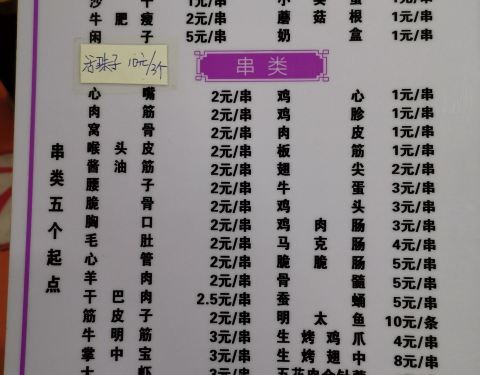 1元/串 1元/串
牛肥瘦 2元/串 蘑菇根 1元/串
闲子 5元/串 奶盒 1元/串
10元/3个
串类
串类五个起点
心嘴 2元/串 鸡心 1元/串
肉筋 2元/串 鸡胗 1元/串
窝骨 2元/串 肉皮 1元/串
喉头皮 2元/串 板筋 1元/串
酱油筋 2元/串 翅尖 2元/串
腰子 2元/串 牛蛋 3元/串
脆骨 2元/串 鸡头 3元/串
胸口 2元/串 鸡肉肠 3元/串
毛肚 2元/串 马克肠 4元/串
心管 2元/串 脆脆肠 5元/串
羊肉 2元/串 骨髓 5元/串
干巴肉 2.5元/串 蚕蛹 5元/串
筋皮子 2元/串 明太鱼 10元/条
牛明筋 3元/串 生烤鸡爪 4元/串
掌中宝 3元/串 生烤翅中 8元/串
大虾